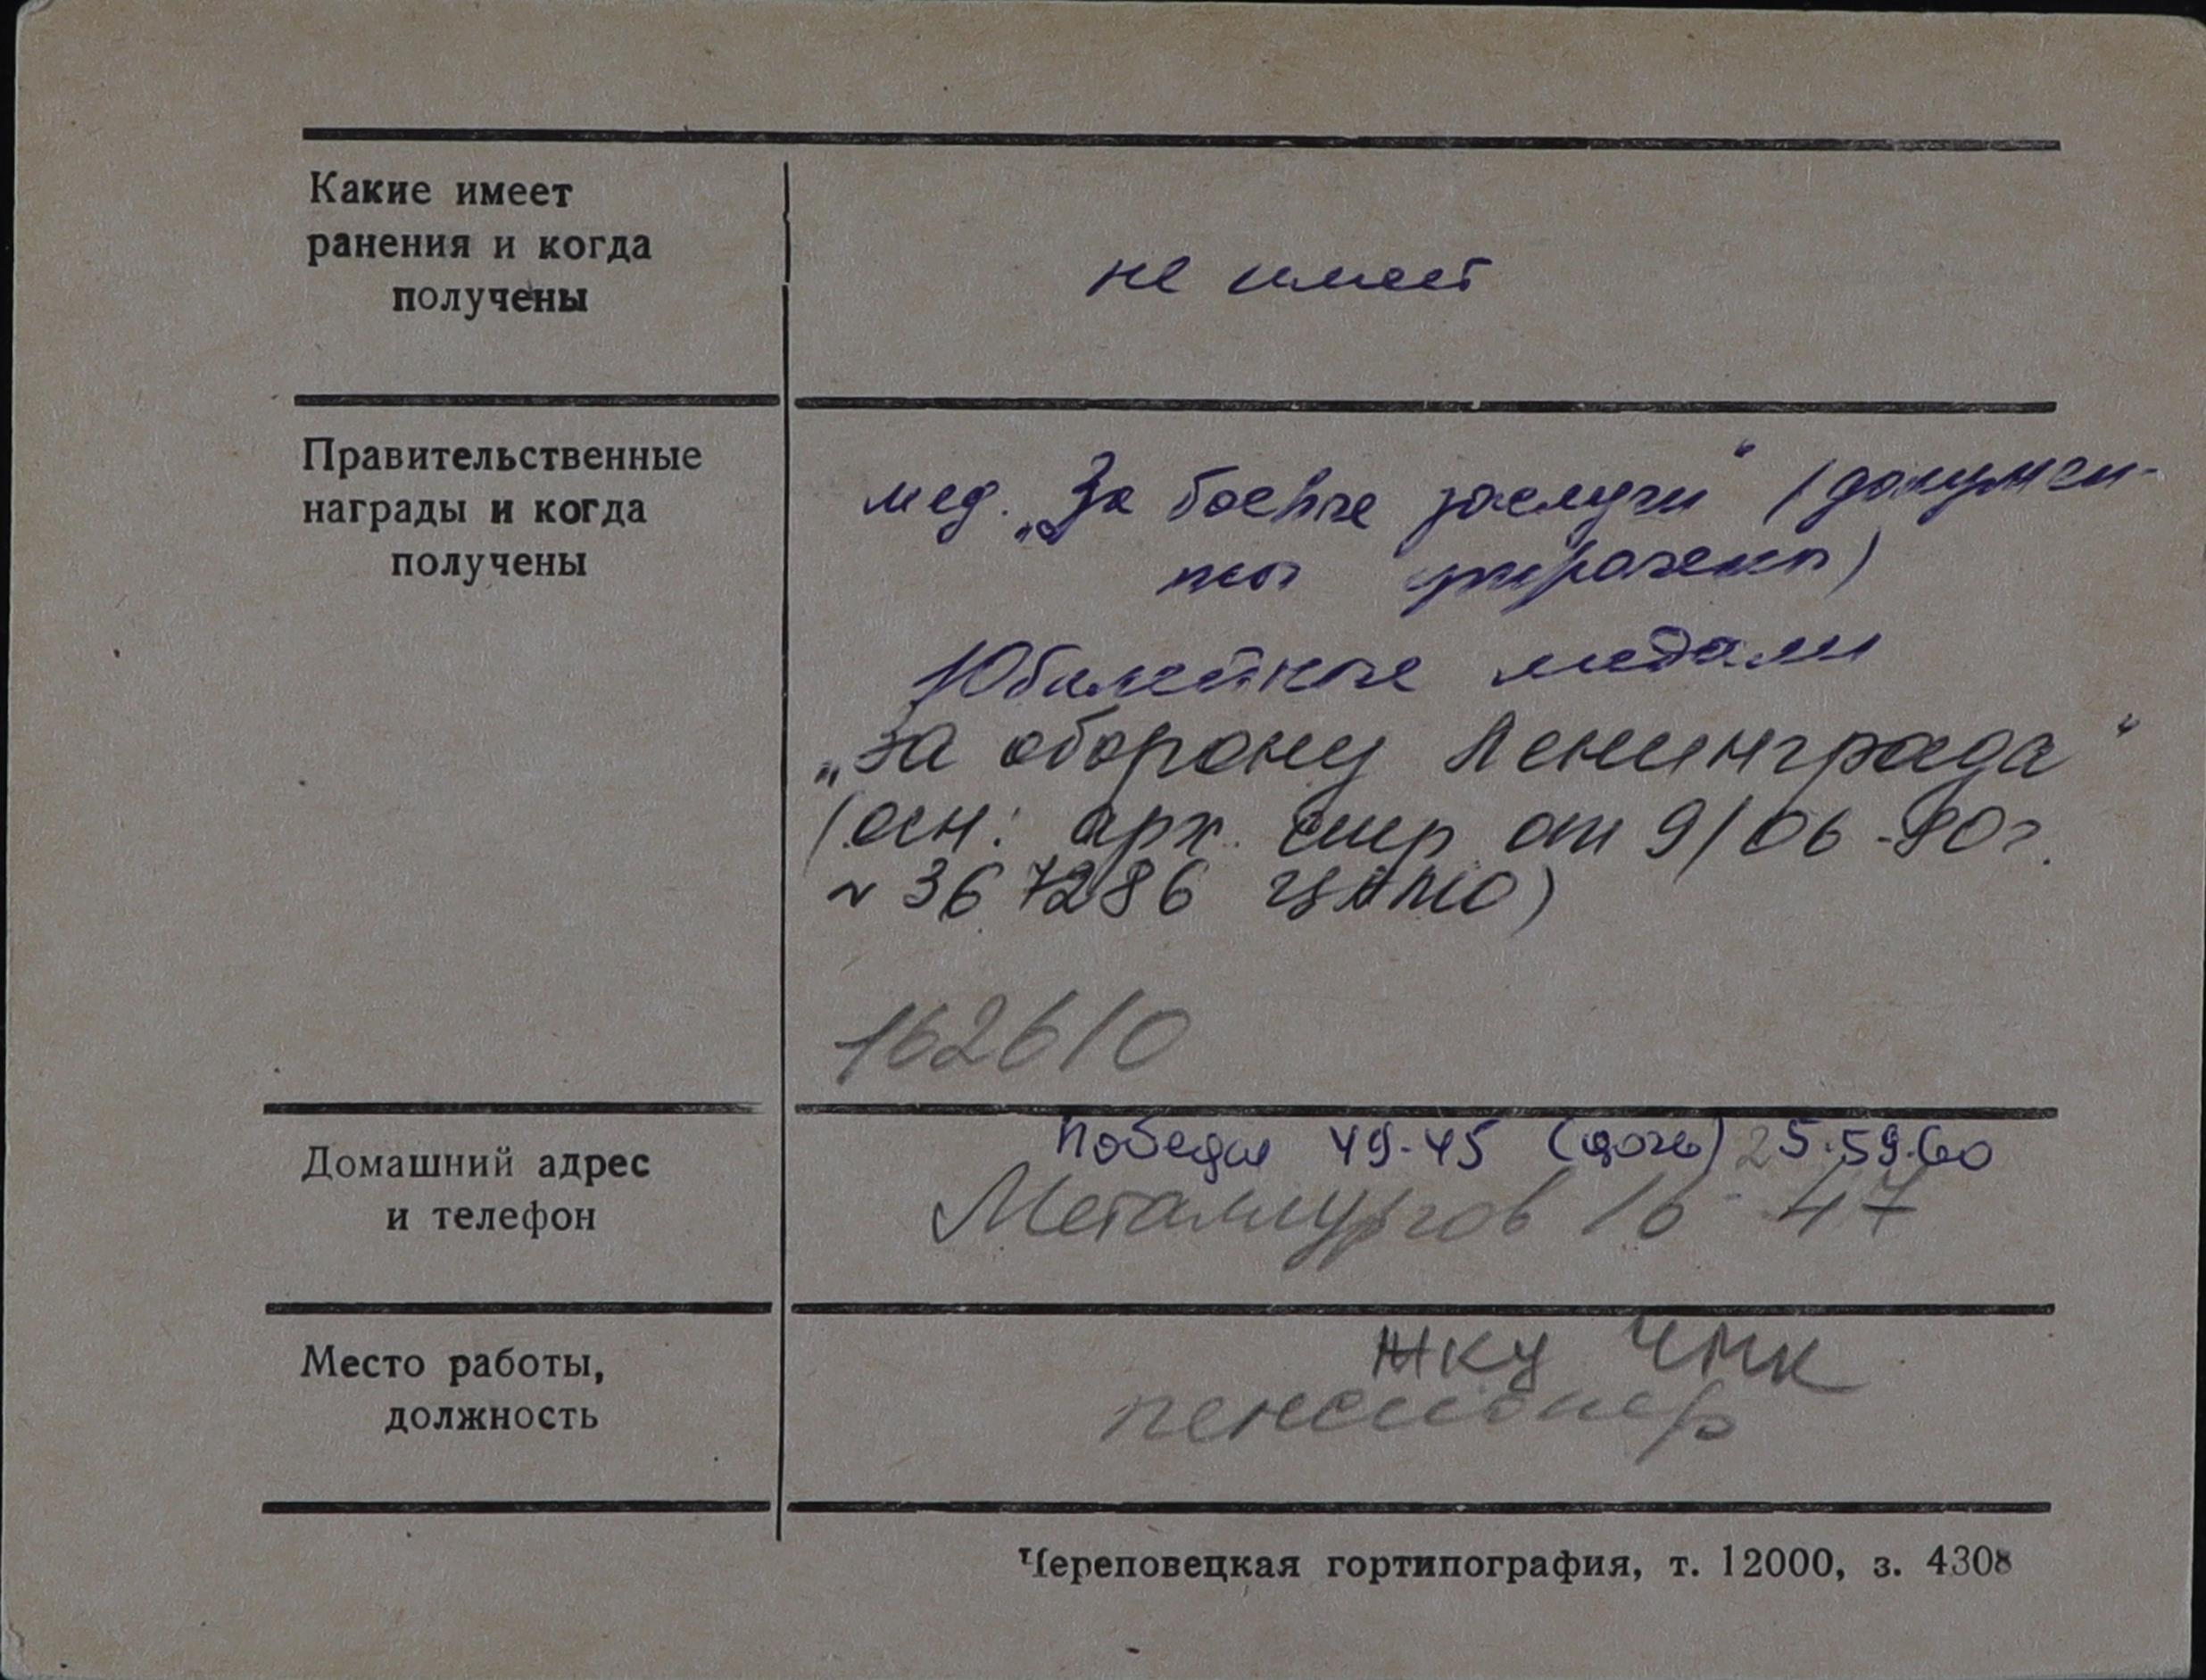 Какие имеет
ранения и когда
получены
не имеет
Правительственные
награды и когда
получены
мед. „За боевые заслуги“ (докумен-
ты утрачены)
Юбилейные медали
„За оборону Ленинграда“
(осн: арх. спр от 9/06-90г.
№ 367286 ЦАМО)
162610
Домашний адрес
и телефон
Победы 49-45 (дочь) 25.59.60
Металлургов 16-47
Место работы,
должность
ЖКУ ЧМК
пенсионер
Череповецкая гортипография, т. 12000, з. 4308